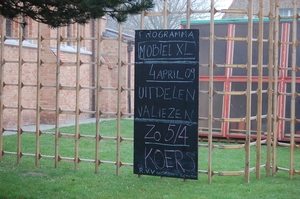 PROGRAMMA
MOBIEL XL
4 APRIL 09
UITDELEN
VALIEZEN
ZO 5/4
KOERS